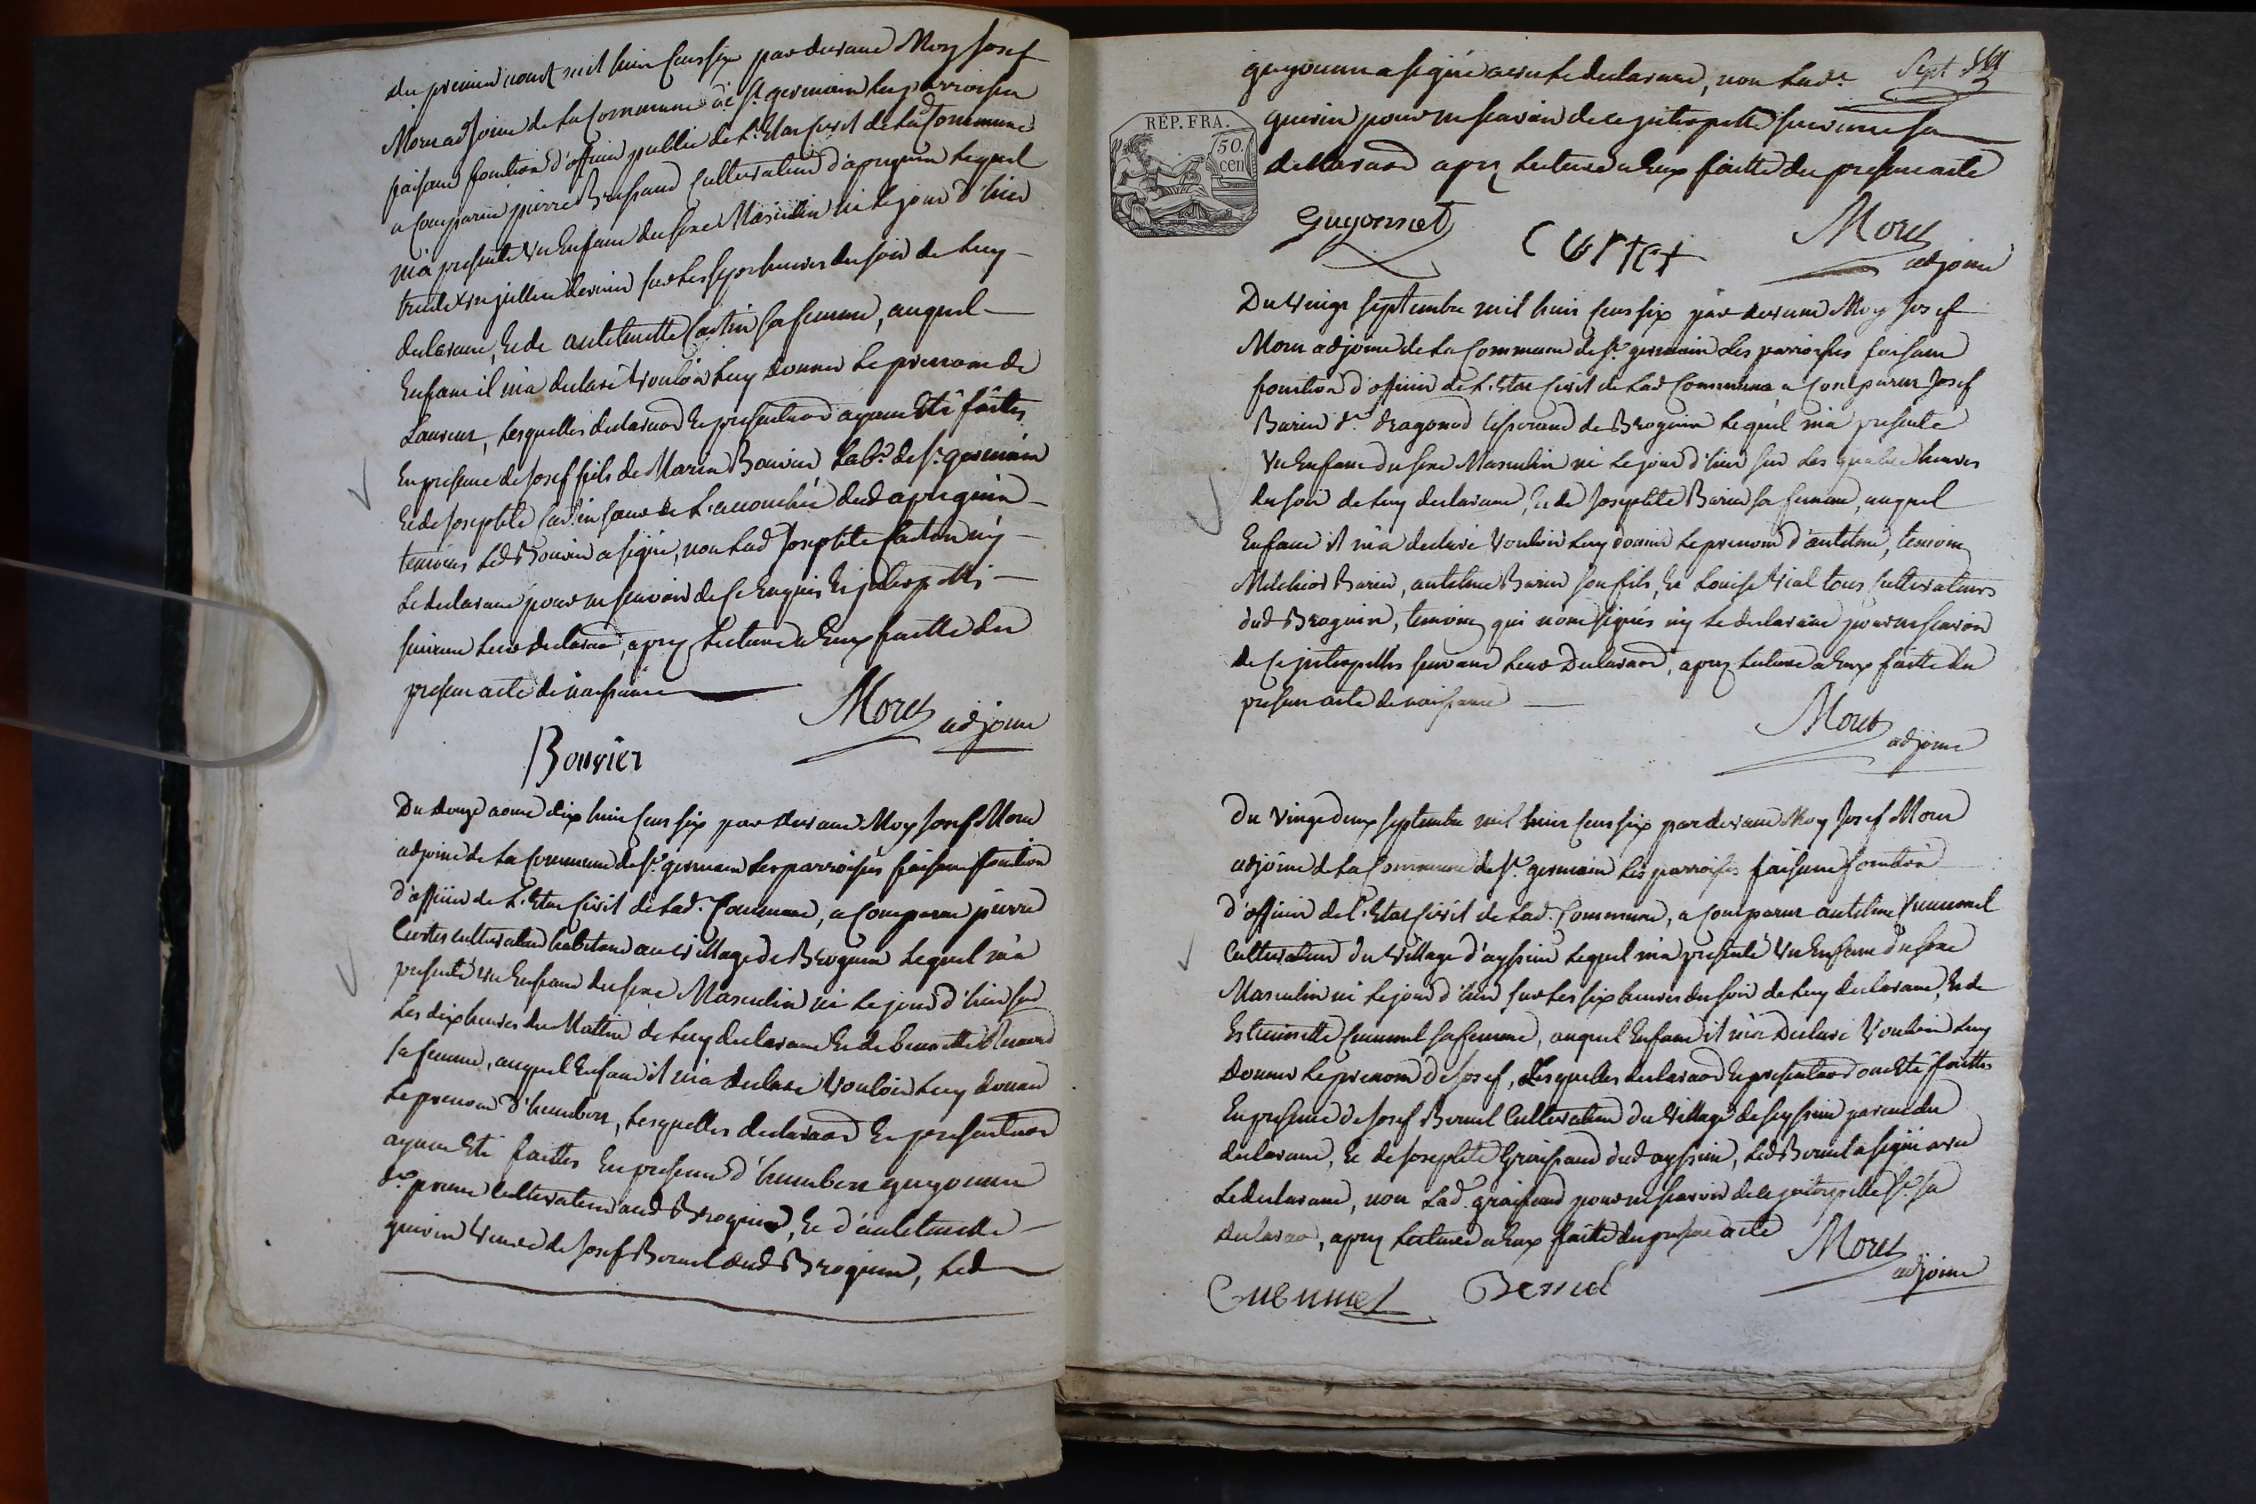 du premier aout mil huit cens six par devant Moy Josef
Moret adjoint de La Commune de St. germain Les parroisses
faisant fonction d'officier public de L'Etat Civil de Lad. Commune
a comparu pierre Brissaud Cultivateur d'apregnin Lequel
m'a presenté Un Enfant du sexe Masculin né Le jour d'hier
trente Un juillet dernier sur Les sept heures du soir de Luy
declarant, Et de anthelmette Carlin sa femme, auquel
Enfant il m'a declaré Vouloir Luy donner Le prenom de
Laurent, Lesquelles declaraon Et presentaon ayant Eté faites
En presence de Josef fils de Marin Bouvier Labr. de St. germain
Et de Josephte Carlin soeur de L'accouchée dud apregnin
temoins Led Bouvier a signé, non Lad Josephte Carlin ny
Le declarant pour ne scavoir de ce Enquis Et interpellés
suivant Leur declaraon, après Lecture a Eux faitte du
present acte de naissance
Moret adjoint
Bouvier
Du douze aout dix huit cens six par devant Moy Josef Moret
adjoint de La Commune de St. germain Les parroisses faisant fonction
d'officier de L'Etat Civil de Lad. Commune, a comparu pierre
Curtet cultivateur habitant au Village de Brognin Lequel m'a
presenté un Enfant du sexe Masculin né Le jour d'hier sur
Les dix heures du Mattin de Luy declarant Et de benoitte
sa femme, auquel Enfant il m'a declaré Vouloir Luy donner
Le prenom d'humbert, Lesquelles declaraon Et presentaon
ayant Eté faittes En presence d'humbert guyonnet
dt. prunet Cultivateur aud Brognin, Et d'anthelmette
guerin Veuve de Josef Bernel dud Brognin, Led
guyonnet a signé avec Le declarant, non Lad.e
Sept
RÉP. FRA.
50.
cen
guerin pour ne scavoir de ce interpellé suivant sa
declaraon après Lecture a Eux faitte du present acte
Guyonnet Curtet Moret
adjoint
Du Vingt septembre mil huit cens six par devant Moy Josef
Moret adjoint de La Commune de St. germain Les parroisses faisant
fonction d'officier de L'Etat Civil de Lad Commune, a Comparu Josef
Burin dt. dragonod tisserand de Brognin Lequel m'a presenté
Un Enfant du sexe Masculin né Le jour d'hier sur Les quatre heures
du soir de Luy declarant, Et de Josephte Burin sa femme, auquel
Enfant il m'a declaré Vouloir Luy donner Le prenom d'anthelme, temoins
Melchior Burin, anthelme Burin son fils, Et Louise Vial tous Cultivateurs
dud Brognin, temoins qui n'ont signés ny Le declarant pour ne scavoir
de Ce interpellés suivant Leur Declaraon, après Lecture a Eux faitte du
present acte de naissance
Moret
adjoint
Du Vingt deux septembre mil huit cens six par devant Moy Josef Moret
adjoint de La Commune de St. germain Les parroisses faisant fonction
d'officier de L'Etat Civil de Lad. Commune, a comparu anthelme Cuennet
Cultivateur du Village d'ayssin Lequel m'a presenté Un Enfant du sexe
Masculin né Le jour d'hier sur Les six heures du soir de Luy declarant, Et de
Estiennette sa femme, auquel Enfant il m'a Declaré Vouloir Luy
Donner Le prenom de Josef, Lesquelles declaraon Et presentaon ont Eté faittes
En presence de Josef Bernel Cultivateur du Village de seyssin parent du
declarant, Et de Josephte graissaud dud ayssin, Led Bernel a signé avec
Le declarant, non Lad. graissaud pour ne scavoir de ce interpellé St. sa
declaraon, après Lecture a Eux faitte du present acte
Moret
adjoint
Cuennet Bernel